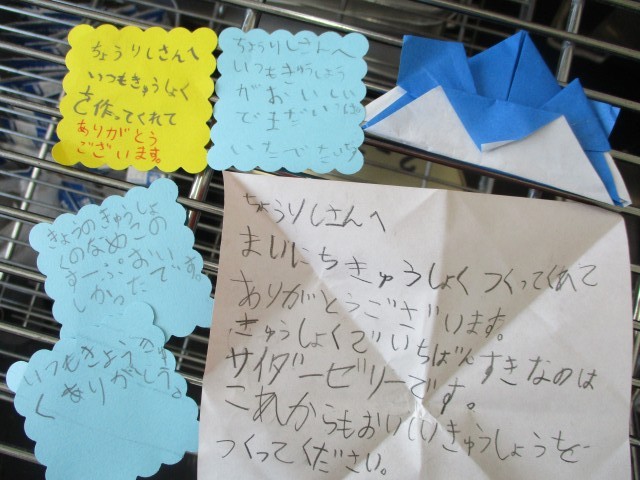 ちょうりしさんへ
いつもきゅうしょく
を作ってくれて
ありがとう
ございます。
ちょうりしさんへ
いつもきゅうしょう
がおいしい
でまだい
いただ
きょうのきゅうしょ
くのなめこの
すーぷ おいで
しかっだ
いつもきょう
くありがとう。
ちょうりしさんへ
まいにちきゅうしょくつくってくれて
ありがとうございます。
きゅうしょくでいちばんすきなのは
サイダーゼリーです。
これからもおいしいきゅうしょうを
つくってください。